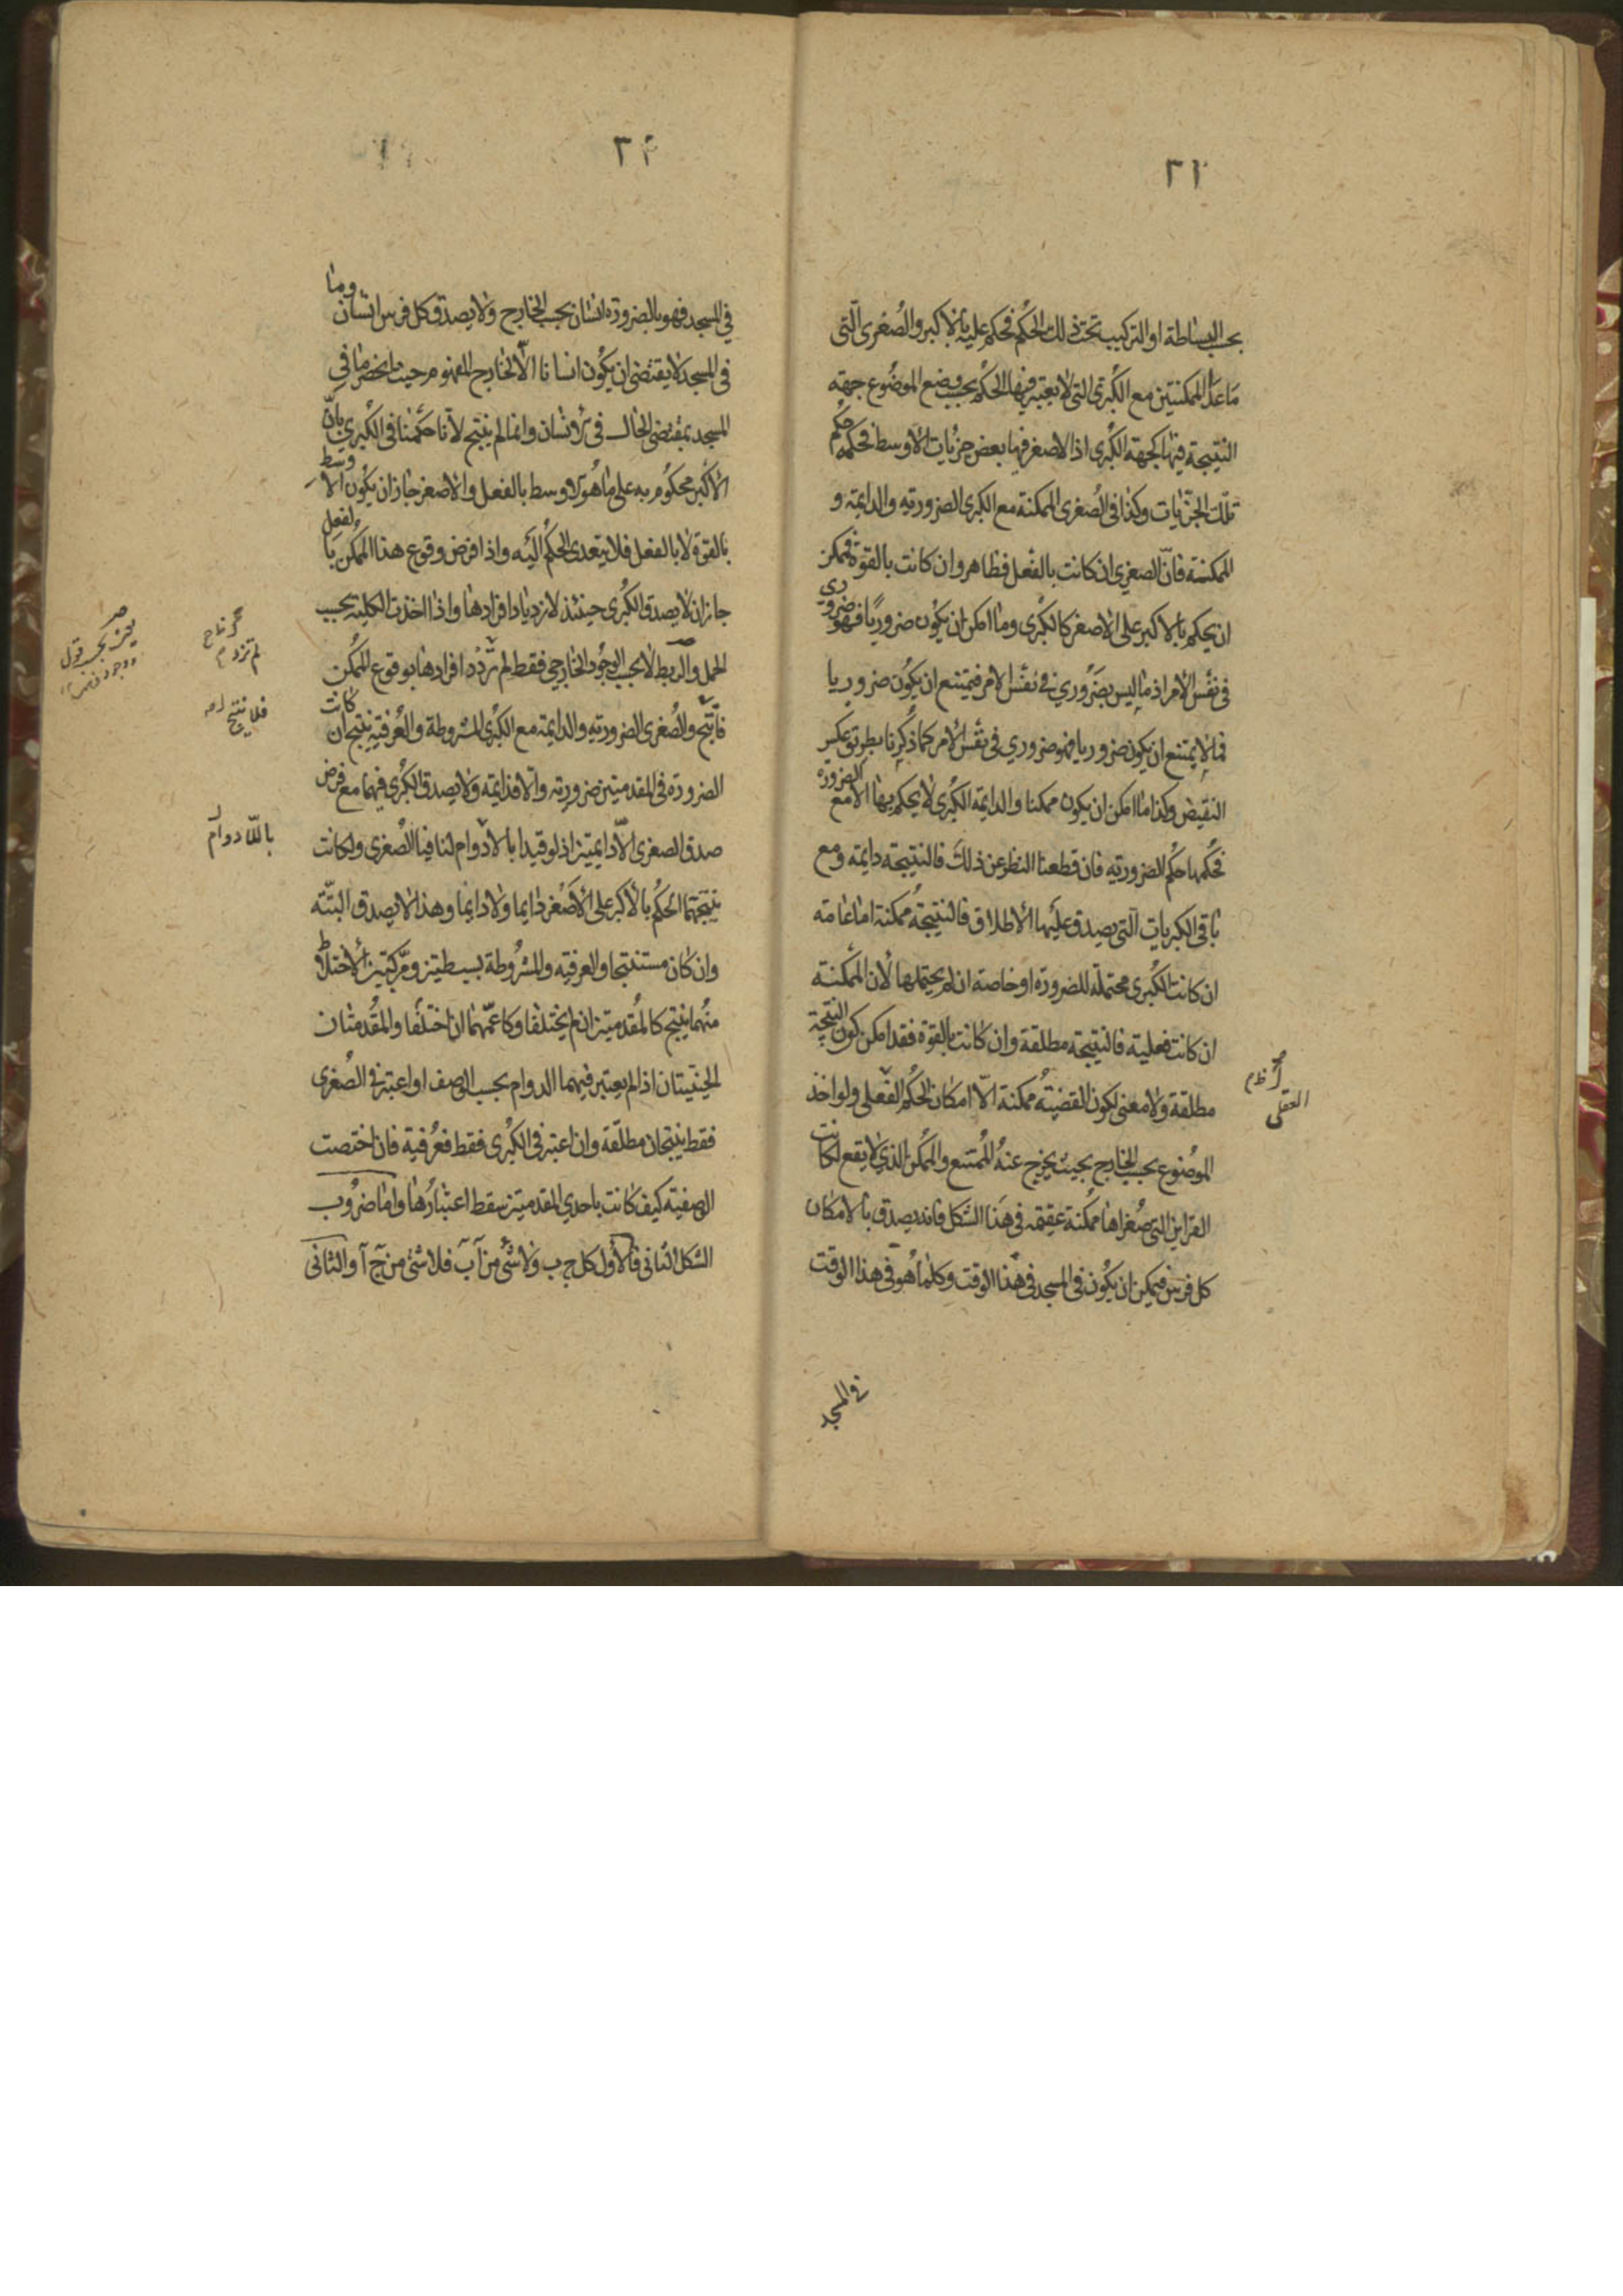 ٢١
بحسب البساطة او التركيب تحت ذلك الحكم فحكم عليه بالاكبر والصغرى التى
ما عدا الممكنتين مع الكبرى التى لا يعتبر فيها الحكم بحسب وضع الموضوع جهة
النتيجة فيها كجهة الكبرى اذ الاصغر فيها بعض جزئيات الاوسط فحكمه حكم
تلك الجزئيات وكذا فى الصغرى الممكنة مع الكبرى الضرورية والدايمة و
الممكنة فان الصغرى ان كانت بالفعل فظاهر وان كانت بالقوة فممكن
ان يحكم بالاكبر على الاصغر كالكبرى وما امكن ان يكون ضروريا فهو ضرورى
فى نفس الامر اذ ما ليس بضرورى فى نفس الامر فيمتنع ان يكون ضروريا
فما لا يمتنع ان يكون ضروريا فهو ضرورى فى نفس الامر كما ذكرنا بطريق عكس
النقيض وكذا ما امكن ان يكون ممكنا والدايمة الكبرى لا يحكم بها الا مع الضرورة
فحكمها حكم الضرورية فان قطعنا النظر عن ذلك فالنتيجة دايمة ومع
باقى الكبريات التى يصدق عليها الاطلاق فالنتيجة ممكنة اما عامة
ان كانت الكبرى محتملة للضرورة او خاصة ان لم يحتملها لان الممكنة
ان كانت فعلية فالنتيجة مطلقة وان كانت بالقوة فقد امكن كون النتيجة
مطلقة ولا معنى لكون القضية ممكنة الا امكان الحكم الفعلى ولو اخذ
الموضوع بحسب الخارج بحيث يخرج عنه الممتنع والممكن الذى لا يقع لكانت
القراين التى صغراها ممكنة عقيمة فى هذا الشكل فانه يصدق بالامكان
كل فرس فممكن ان يكون فى المسجد فى هذا الوقت وكلما هو فى هذا الوقت
فى المسجد
العقلى
٢٢
فى المسجد فهو بالضرورة انسان بحسب الخارج ولا يصدق كل فرس انسان وما
فى المسجد لا يقتضى ان يكون انسانا الا لخارج المفهوم من حيث ما يحضر ما فى
المسجد بمقتضى الحال فى انسان وانما لم ينتج لانا حكمنا فى الكبرى بان
الاكبر محكوم به على ما هو الاوسط بالفعل والاصغر جاز ان يكون الاوسط
بالقوة لا بالفعل فلا يتعدى الحكم اليه واذا فرض وقوع هذا الممكن بالفعل
جاز ان لا يصدق الكبرى حينئذ لازدياد افرادها واذا اخذت الكلية بحسب
الحمل والربط لا بحسب الوجود الخارجى فقط لم تزدد افرادها بوقوع الممكن
فانتج والصغرى الضرورية والدايمة مع الكبرى المشروطة والعرفية ينتج ان كانت
الضرورة فى المقدمتين ضرورية والا فدايمة ولا يصدق الكبرى فيهما مع فرض
صدق الصغرى الا دايمتين اذ لو قيدا بالادوام لنافيا الصغرى ولكانت
نتيجتها الحكم بالاكبر على الاصغر دايما ولا دايما وهذا لا يصدق البتة
وان كان مستنتجا والعرفية والمشروطة بسيطتين ومركبتين الاختلاط
منهما ينتج كالمقدمتين ان لم يختلفا وكاعمهما ان اختلفا والمقدمتان
الحينيتان اذا لم يعتبر فيهما الدوام بحسب الوصف او اعتبر فى الصغرى
فقط ينتجان مطلقة وان اعتبر فى الكبرى فقط فعرفية فان اختصت
الوصفية كيف كانت باحدى المقدمتين سقط اعتبارها واما ضروب
الشكل الثانى فالاول كل ج ب ولا شئ من آ ب فلا شئ من ج آ والثانى
لم تزدد
فلا ينتج
باللا دوام